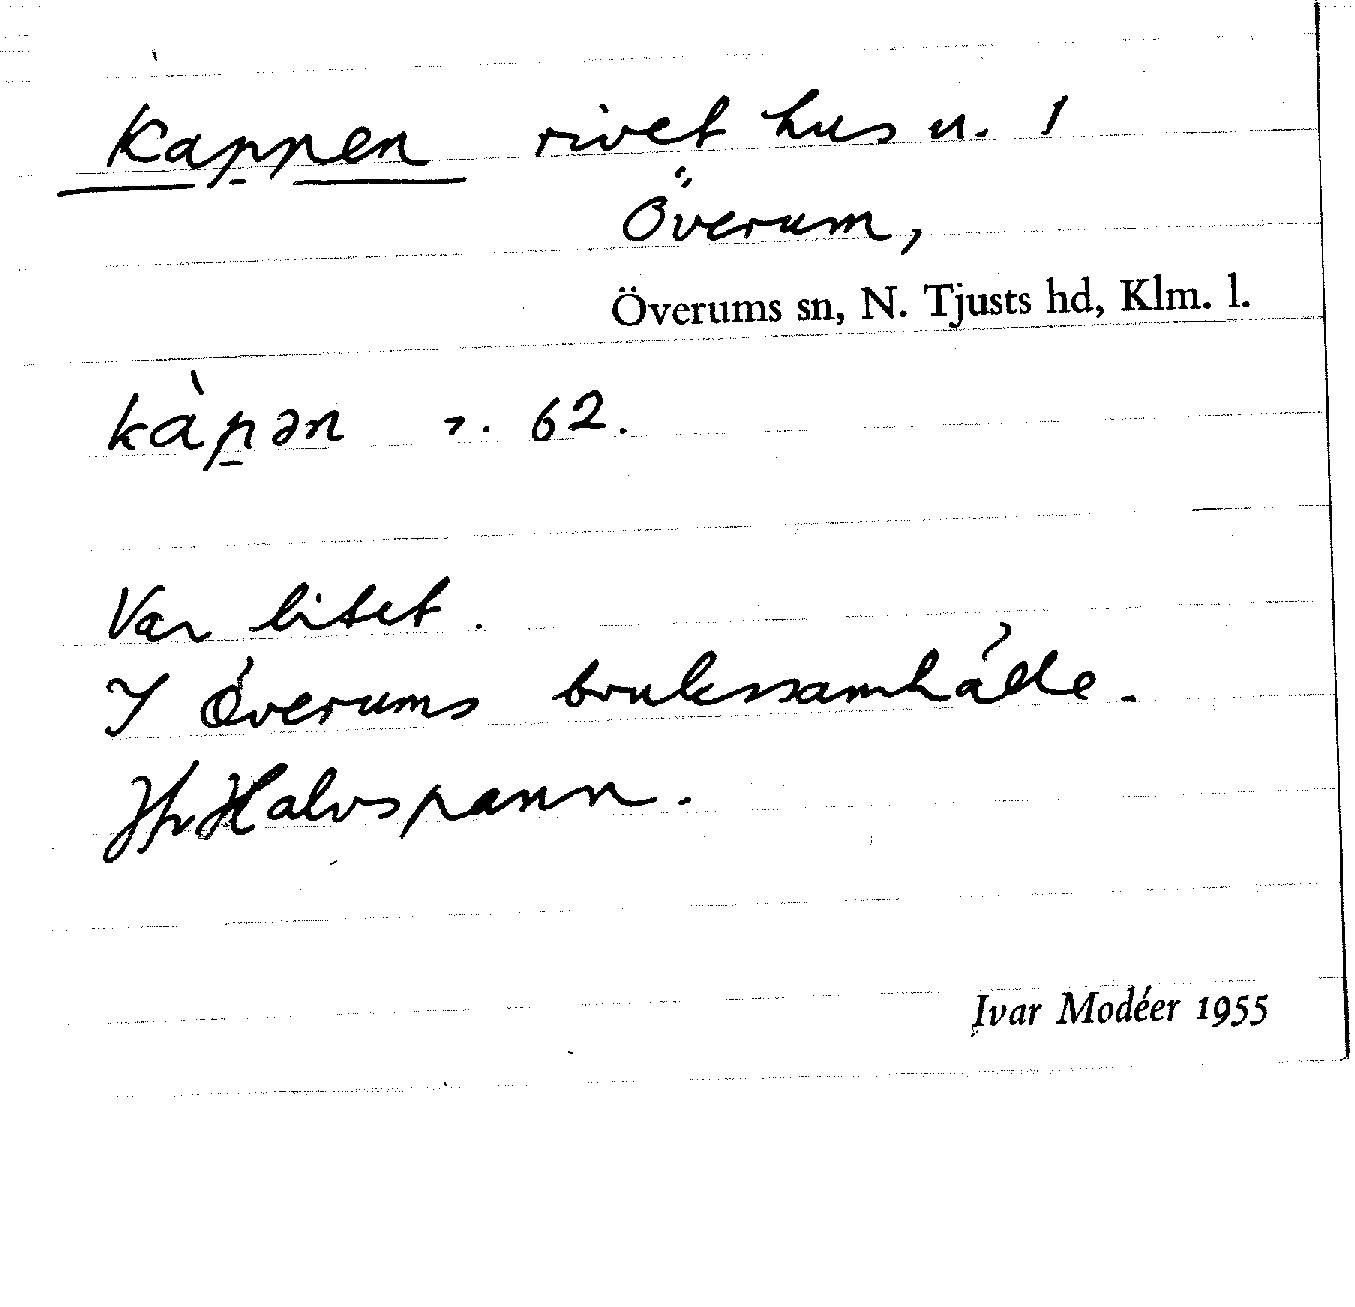 Kappen rivet hus u. 1
Överum,
Överums sn, N. Tjusts hd, Klm. l.
kàp̠ən 7. 62.
Var litet.
I Överums brukssamhälle.
Jfr Halvspann.
Ivar Modéer 1955